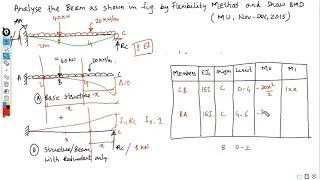 Analyse the Beam as shown in fig. by flexibility Method and Draw BMD
(MU, Nov-Dec, 2015)
40KN
20KN/m
A
B
C
2m
4
RC
1 EI
40KN
20KN/m
A
B
C
Δ10
x
(A) Basic structure
x
A
C
(B) Structure/Beam with redundant only.
RC / 1 KN
Members EI, origin Limit M0 M1
CB 1EI C 0-4 -20x²/2 1xx
BA 1EI C 4-6
B 0-2